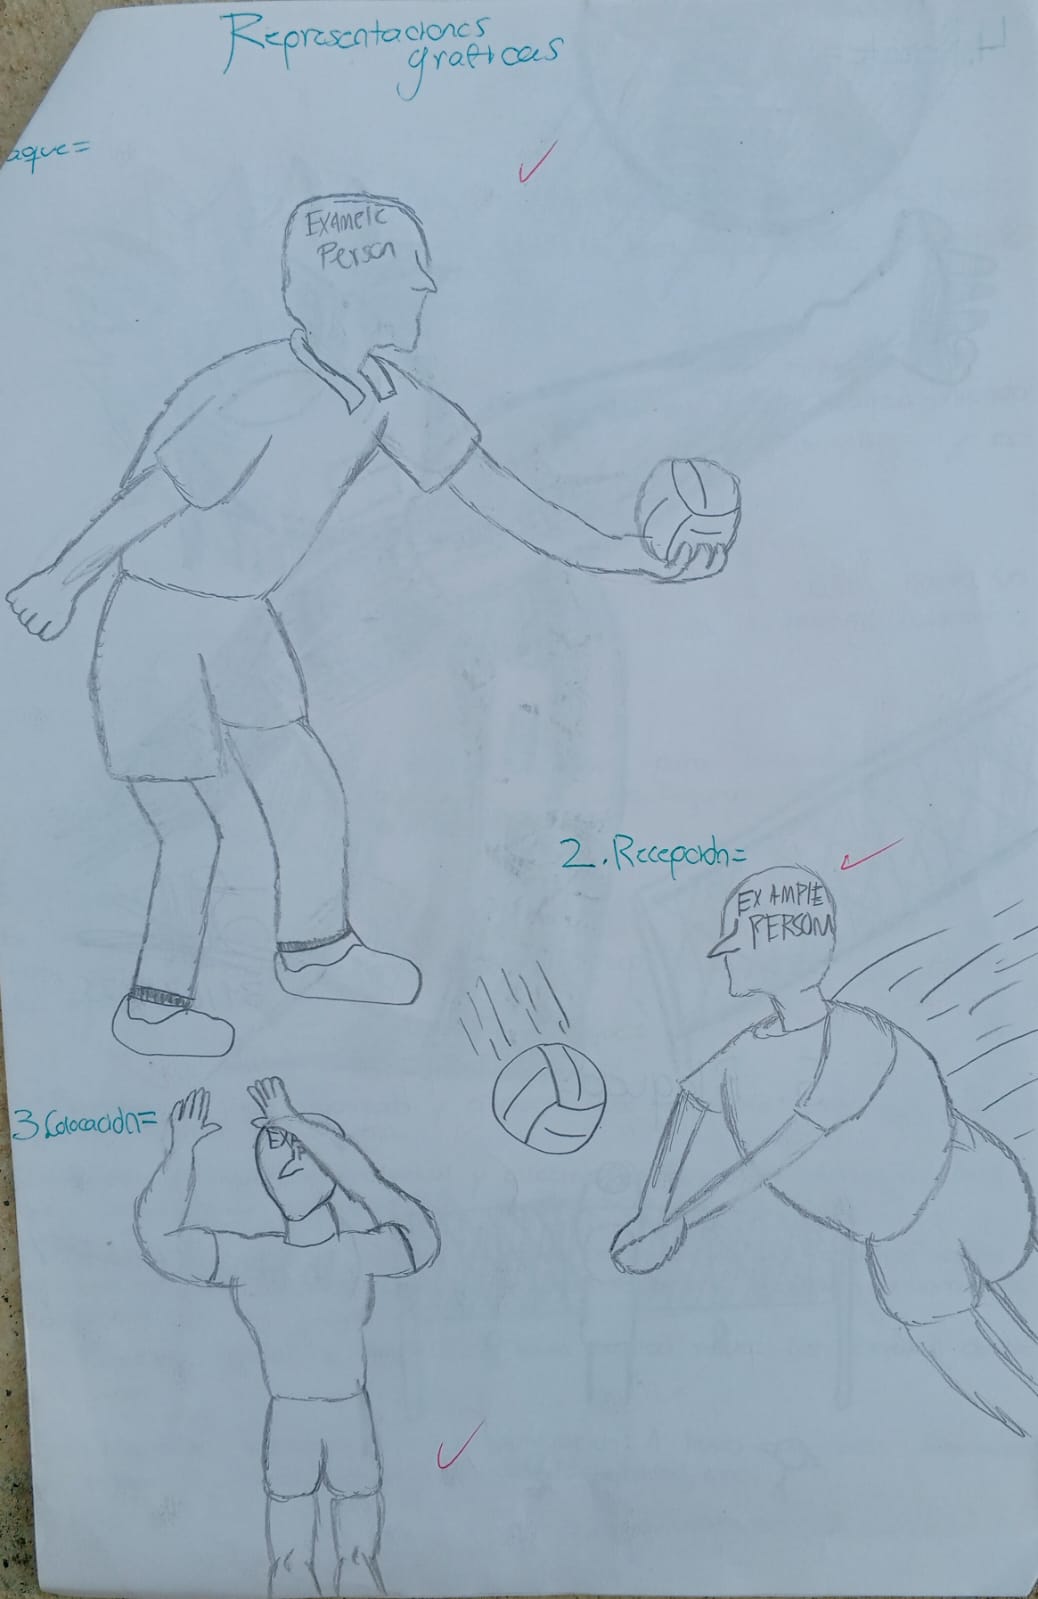 Representaciones
graficas
aque=
EXAMPLE
Person
2. Recepción=
EXAMPLE
PERSON
3 Colocación=
EXP